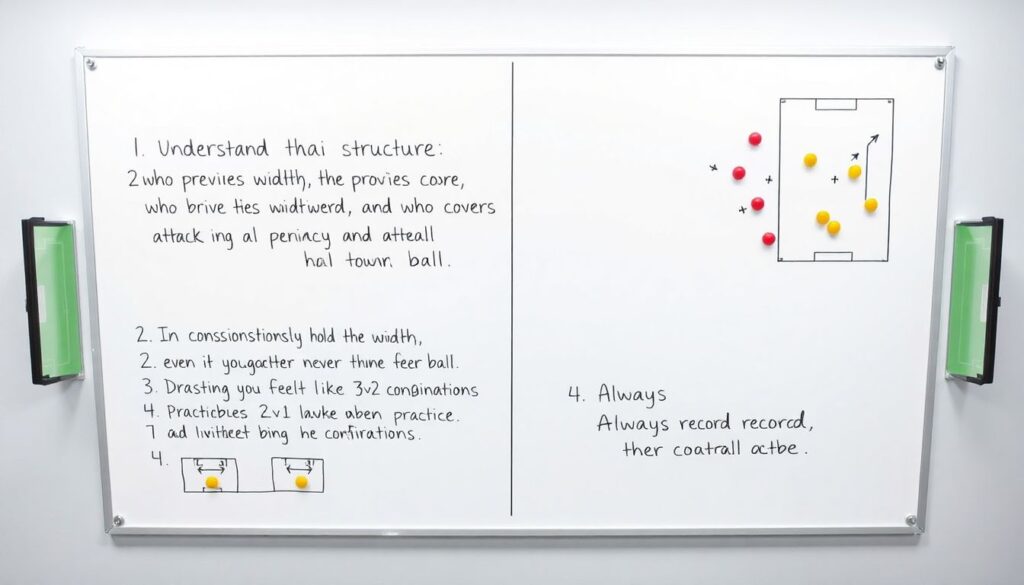 1. Understand thai structure:
2 who previies width, the provies core,
who brive ties widtwerd, and who covers
attack ing al peniacy and atteall
hal town ball.
2. In conssionstionsly hold the width,
2. even it yougactter never thine feer ball.
3. Drasting you feelt like 3v2 conginations
4. Practicbies 2v1 lavke aben practice.
7 ad livitheet bing he confirations.
4.
4. Always
Always record record,
ther coatrall actbe.